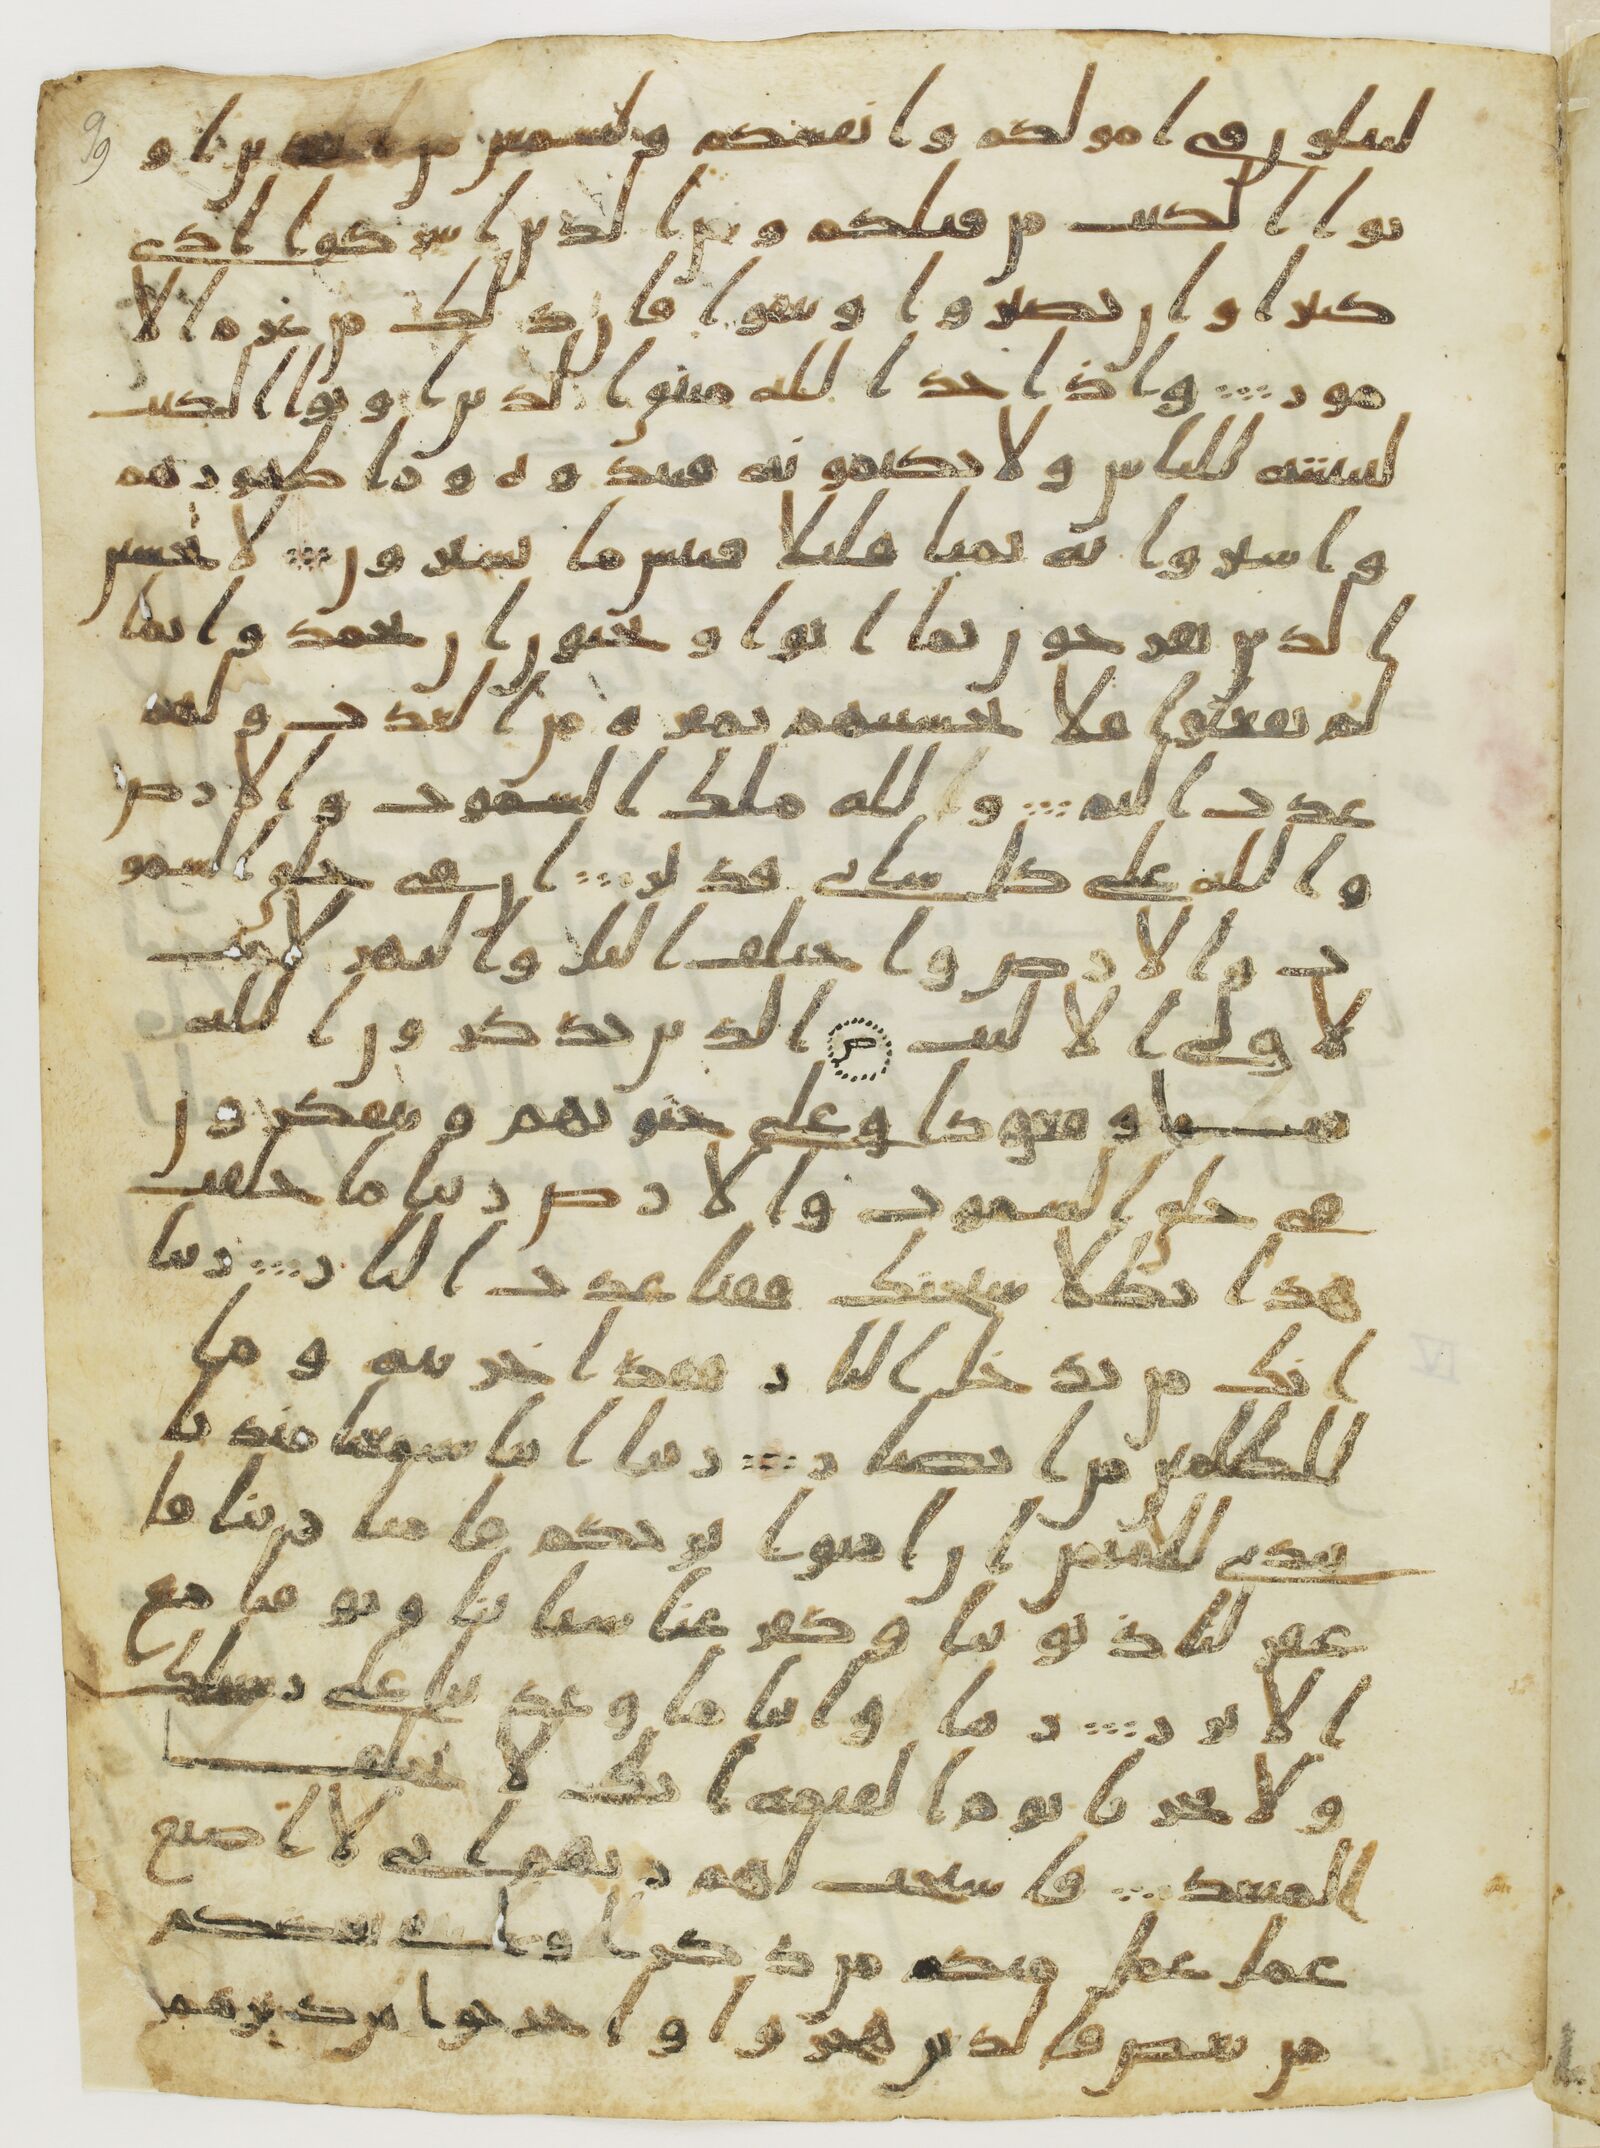 لتبلون في امولكم وانفسكم ولتسمعن من الذين او
توا الكتب من قبلكم ومن الذين اشركوا اذى
كثيرا وان تصبروا وتتقوا فان ذلك من عزم الا
مور واذ اخذ الله ميثق الذين اوتوا الكتب
لتبيننه للناس ولا تكتمونه فنبذوه ورا ظهورهم
واشتروا به ثمنا قليلا فبيس ما يشترون لا تحسبن
الذين يفرحون بما اتوا ويحبون ان يحمدوا بما
لم يفعلوا فلا تحسبنهم بمفزه من العذب ولهم
عذب اليم ولله ملك السموت والارض
والله على كل شاى قدير ان في خلق السمو
ت والارض واختلف اليل والنهر لايت
لاولى الالبب الذين يذكرون الله
قيما وقعودا وعلى جنوبهم ويتفكرون
في خلق السموت والارض ربنا ما خلقت
هذا بطلا سبحنك فقنا عذب النار ربنا
انك من تدخل النار فقد اخزيته وما
للظلمين من انصار ربنا اننا سمعنا منديا
يندى للايمن ان امنوا بربكم فامنا ربنا فا
غفر لنا ذنوبنا وكفر عنا سياتنا وتوفنا مع
الابرر ربنا واتنا ما وعدتنا على رسلك
ولا تخزنا يوم القيمه انك لا تخلف
الميعد فاستجب لهم ربهم انى لا اضيع
عمل عمل منكم من ذكر او انثى بعضكم
من بعض فالذين هجروا واخرجوا من ديرهم